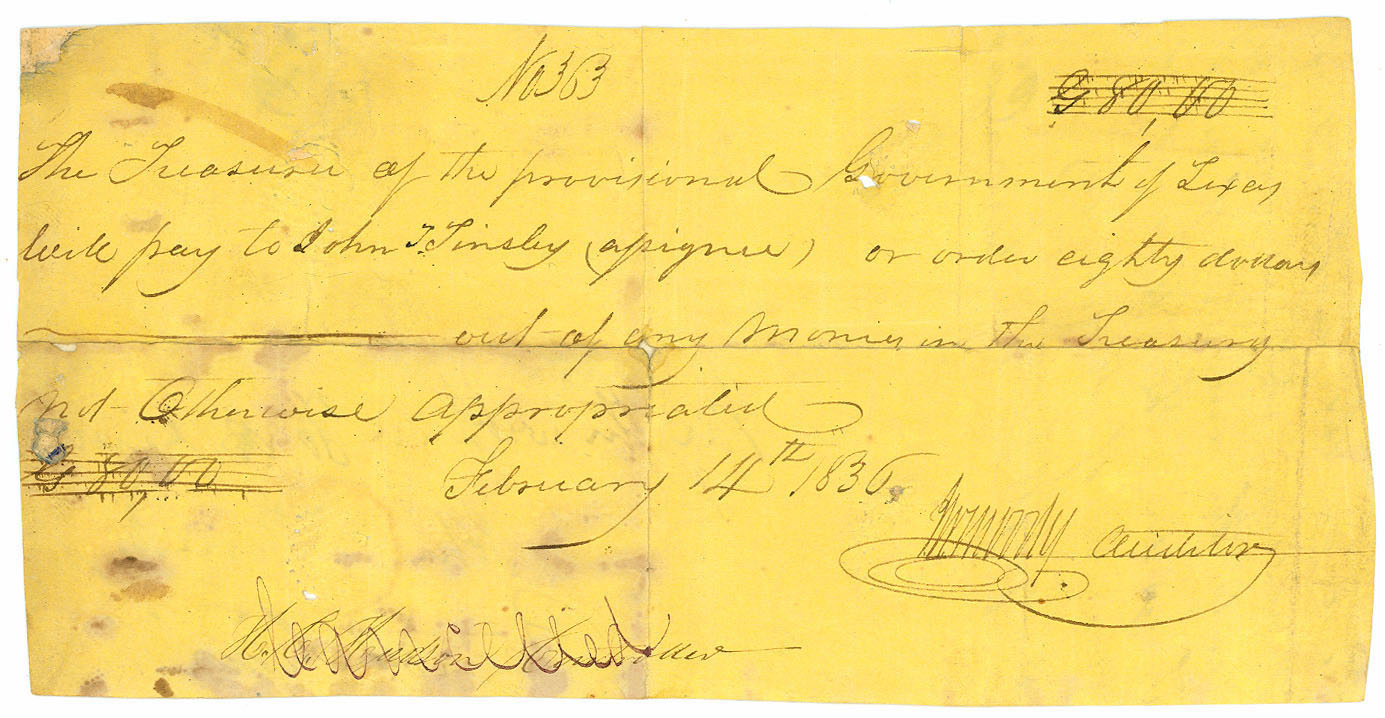 No 363
$ 80,00
The Treasurer of the provisional Government of Texas
will pay to John T Tinsley (assignee) or order eighty dollars
out of any Monies in the Treasury
not Otherwise appropriated
$ 80,00
February 14th 1836
Auditor
H. C. Hudson Comptroller